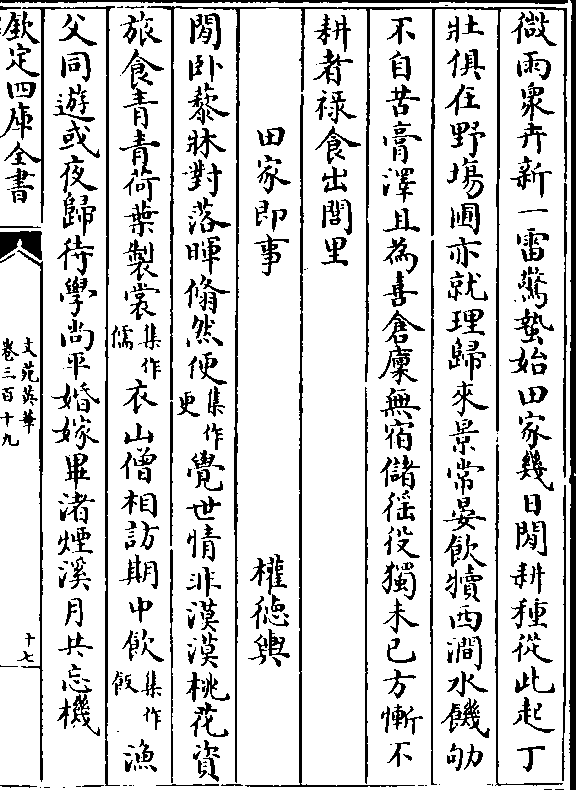 微雨衆卉新一雷驚蟄始田家幾日閒耕種從此起丁
壯俱在野塲圃亦就理歸來景常晏飲犢西澗水饑劬
不自苦膏澤且為喜倉廩無宿儲徭役獨未已方慚不
耕者祿食出閭里
田家即事 權德輿
閒卧藜牀對落暉翛然便集作更覺世情非漠漠桃花資
旅食青青荷葉製裳集作儒衣山僧相訪期中飲集作飯漁
父同遊或夜歸待學尚平婚嫁畢渚煙溪月共忘機
欽定四庫全書
文苑英華
卷三百十九
十七